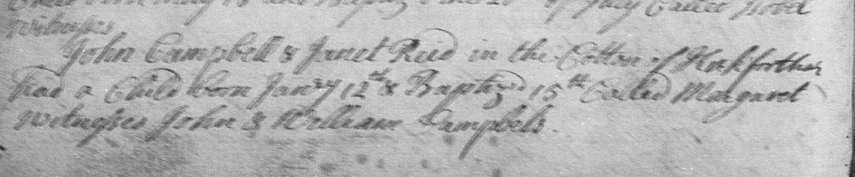 Witnesses
John Campbell & Janet Reid in the Cotton of Kirkforthar
had a Child born Janry 12th & Baptiz'd 15th Called Margaret
Witnesses John & William Campbels.